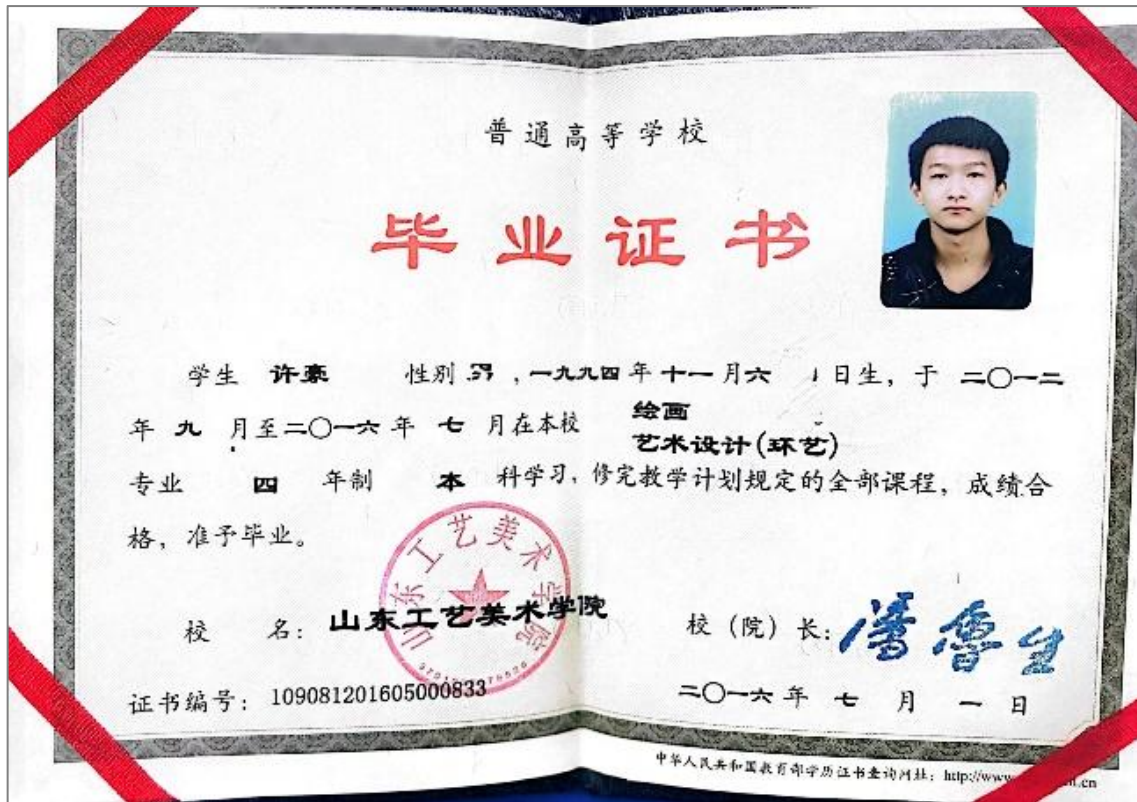 普通高等学校
毕业证书
学生 许豪 性别 男，一九九四年十一月六 日生，于 二〇一二
年 九 月至二〇一六年 七 月在本校 绘画
艺术设计(环艺)
专业 四 年制 本 科学习，修完教学计划规定的全部课程，成绩合
格，准予毕业。
山东工艺美术学院
校 名：山东工艺美术学院 校（院）长：潘鲁生
证书编号：109081201605000833 二〇一六年 七 月 一 日
中华人民共和国教育部学历证书查询网址：http://www